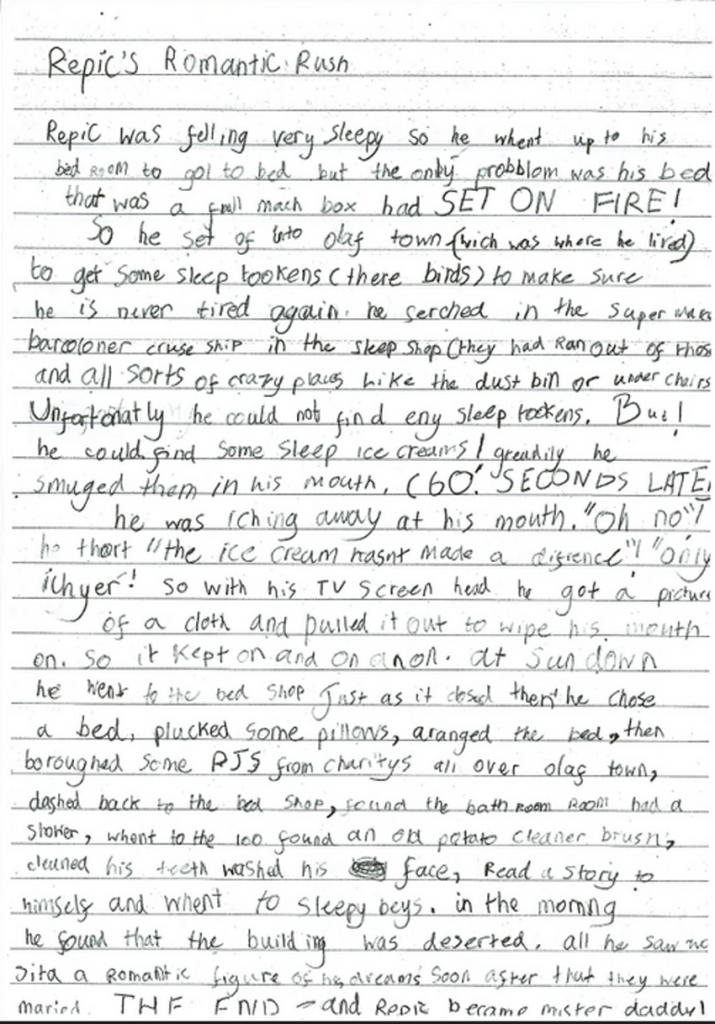 Repic's Romantic Rush
Repic was felling very sleepy so he whent up to his
bed room to gol to bed but the only probblom was his bed
that was a full mach box had SET ON FIRE!
So he set of into olag town (wich was where he lived)
to get some sleep tookens (there birds) to make sure
he is never tired again. he serched in the super
barcoloner cruse ship in the sleep shop (they had Ran out of thos
and all sorts of crazy places like the dust bin or under chairs
Unfortonatly he could not find eny sleep tookens. But!
he could find some sleep ice creams! greadily he
smuged them in his mouth. (60! SECONDS LATE
he was iching away at his mouth. "Oh no"!
he thort "the ice cream hasnt made a difrence"! "only
ichyer! So with his TV screen head he got a picture
of a cloth and pulled it out to wipe his mouth
on. So it kept on and on anon. at sun down
he went to the bed shop just as it closed then he chose
a bed, plucked some pillows, aranged the bed, then
boroughed some PJS from charitys all over olag town,
dashed back to the bed shop, found the bath room Room had a
shower, whent to the loo found an old potato cleaner brush,
cleaned his teeth washed his face, Read a story to
himself and whent to sleepy beys. in the morning
he found that the building was deserted. all he saw
Jita a Romantic figure of his dreams soon after that they were
maried. THE END – and Repic became mister daddy!